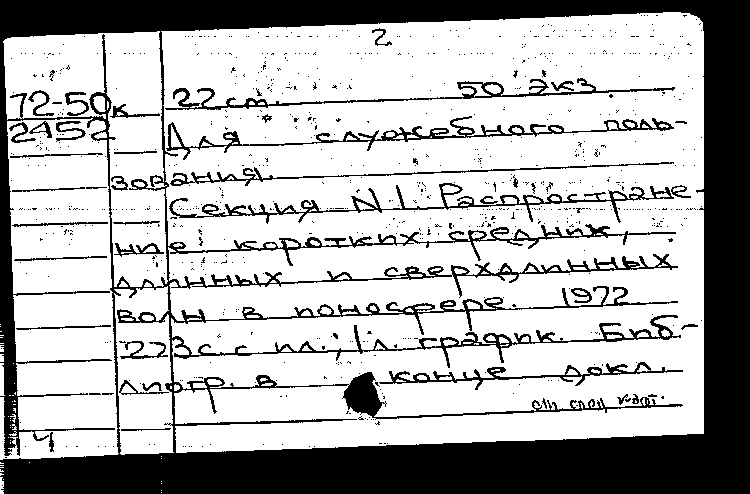 2.
72-50к 22 см. 50 экз.
2452 Для служебного поль-
зования.
Секция N1. Распростране-
ние коротких, средних,
длинных и сверхдлинных
волн в ионосфере. 1972
223 с. с ил.; 1 л. график. Биб-
лиогр. в конце докл.
4